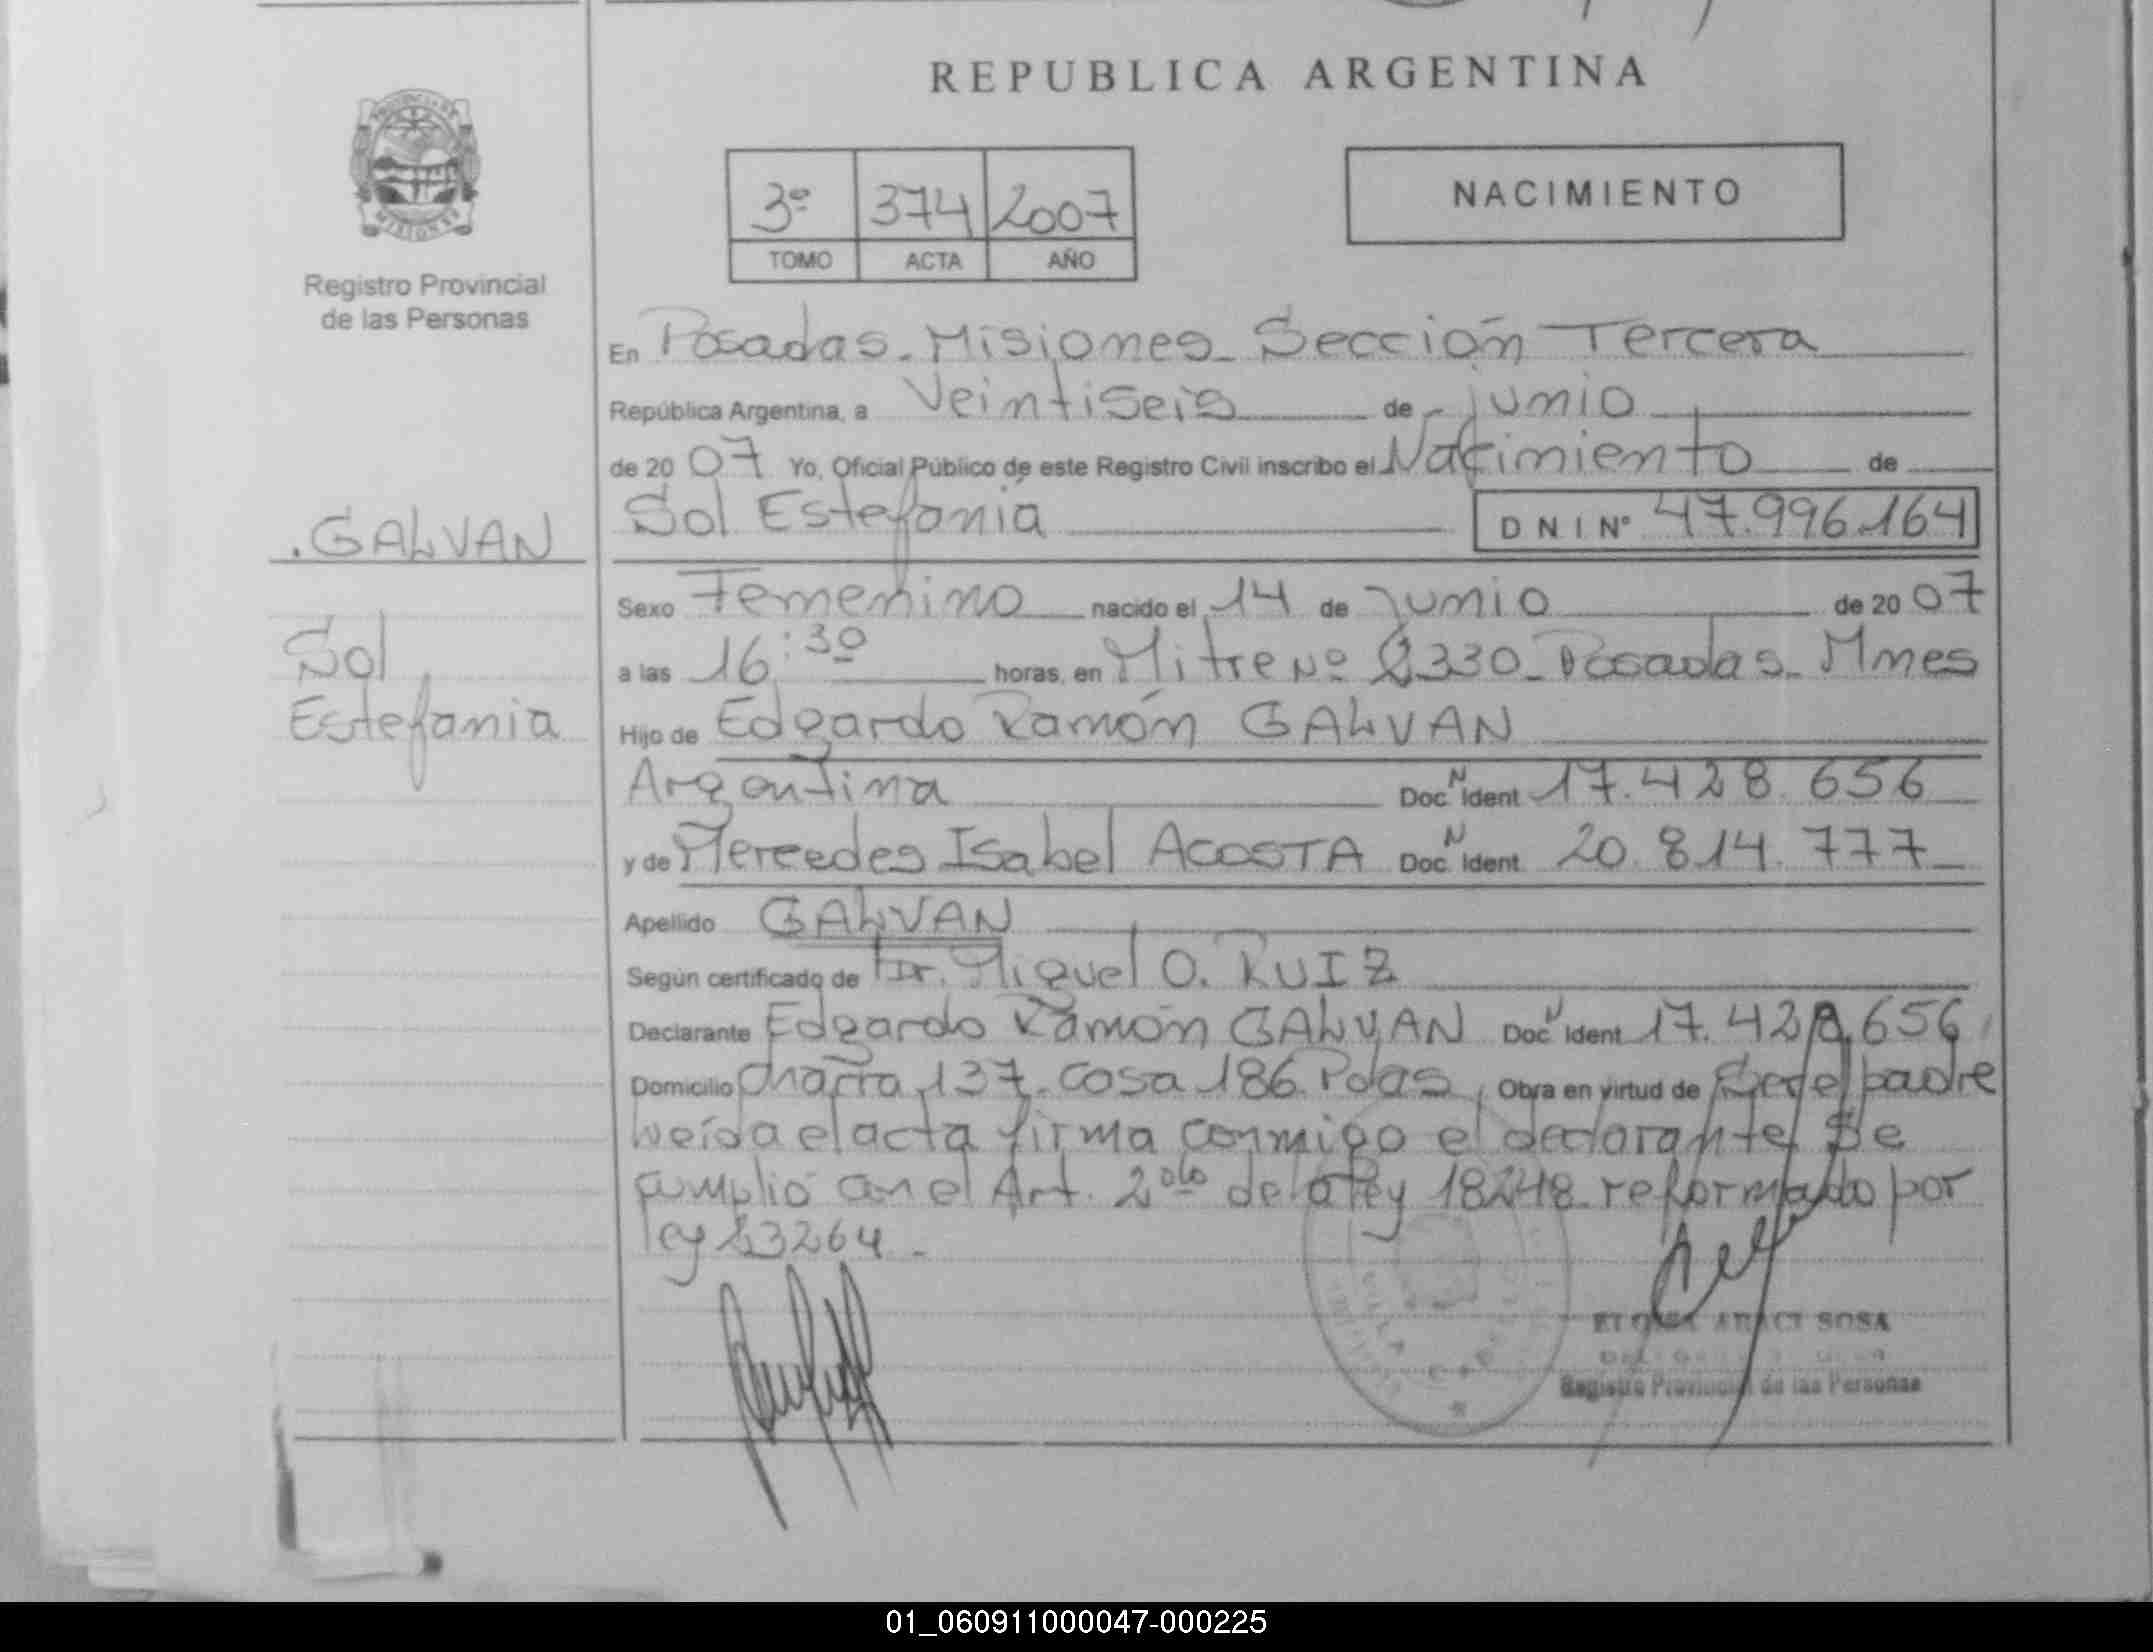 REPUBLICA ARGENTINA
PROVINCIA DE
MISIONES
Registro Provincial
de las Personas
3º 374 2007
TOMO ACTA AÑO
NACIMIENTO
En Posadas - Misiones - Sección Tercera
República Argentina, a Veintiseis de junio
de 2007 Yo, Oficial Público de este Registro Civil inscribo el Nacimiento de
Sol Estefania DNI Nº 47.996.164
GALVAN
Sol
Estefania
Sexo Femenino nacido el 14 de Junio de 2007
a las 16:30 horas, en Mitre Nº 2330 - Posadas - Mnes
Hijo de Edgardo Ramón GALVAN
Argentina Doc N Ident 17.428.656
y de Mercedes Isabel ACOSTA Doc N Ident 20.814.777
Apellido GALVAN
Según certificado de Dr. Miguel O. RUIZ
Declarante Edgardo Ramón GALVAN Doc N Ident 17.428.656
Domicilio chacra 137 - casa 186 Pdas Obra en virtud de Ser el padre
Leída el acta firma conmigo el declarante Se
cumplió con el Art. 2do de la ley 18248 reformado por
ley 23264 -
ARACI SOSA
Registro Provincial de las Personas
01_060911000047-000225